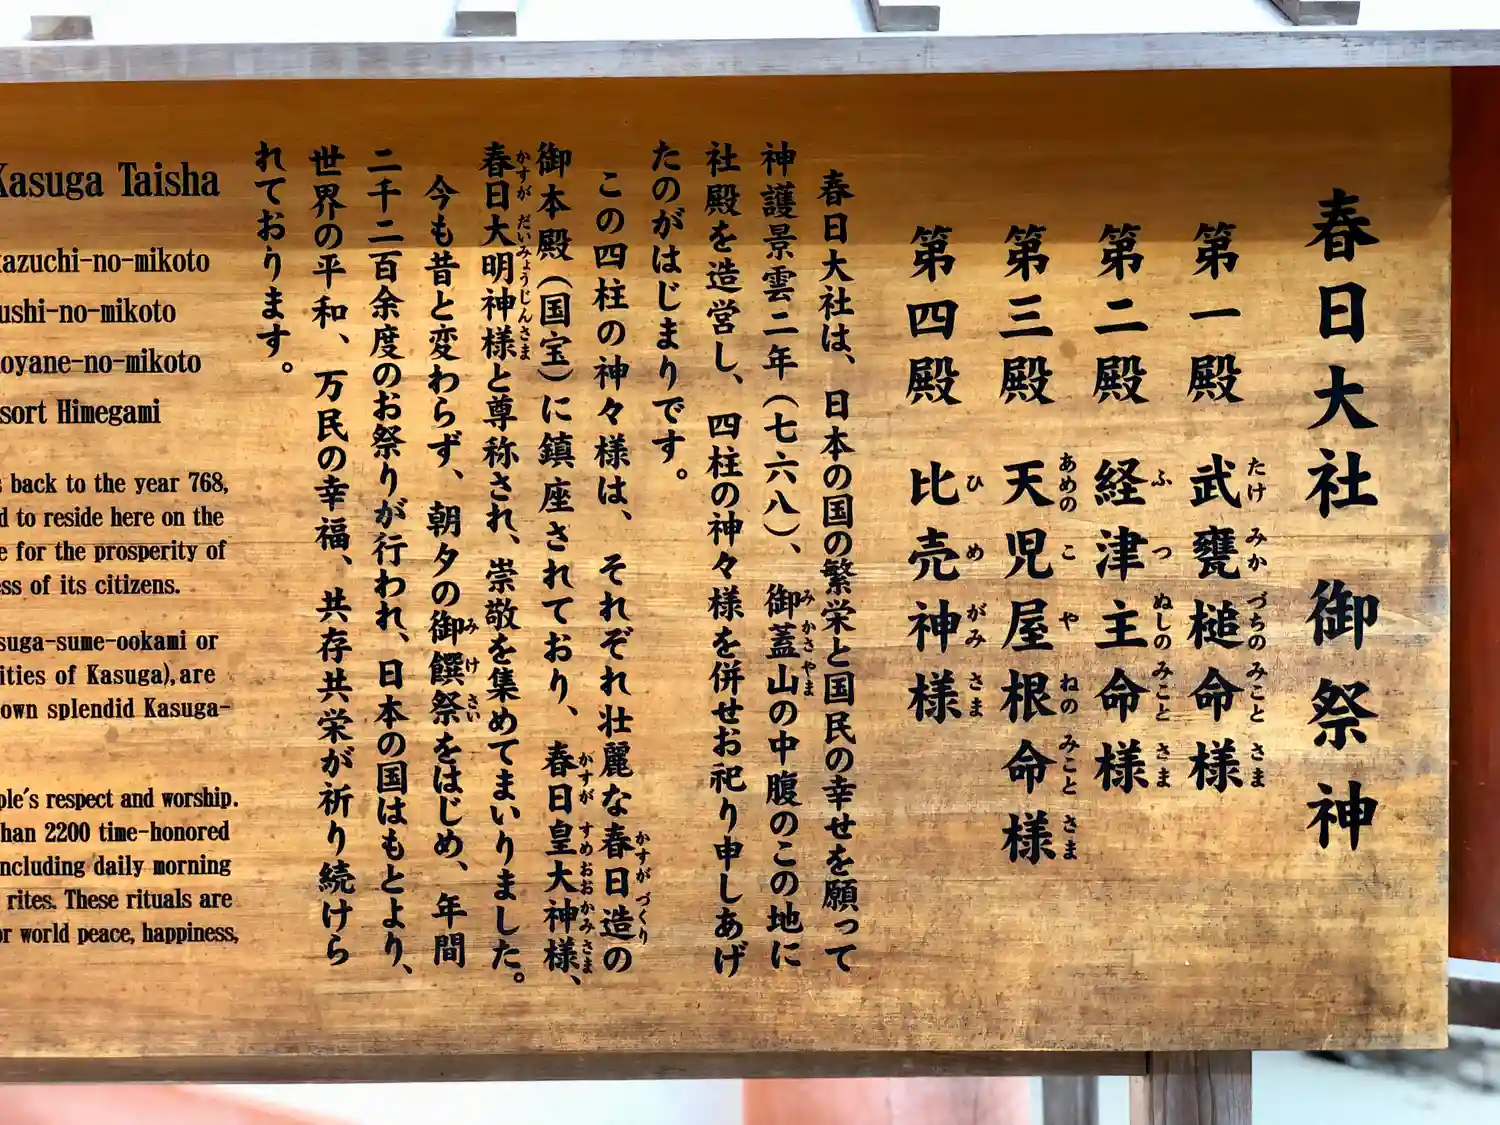 春日大社 御祭神
第一殿 武甕槌命様
たけ みか づちの みこと さま
第二殿 経津主命様
ふ つ ぬしの みこと さま
第三殿 天児屋根命様
あめの こ や ねの みこと さま
第四殿 比売神様
ひ め がみ さま
春日大社は、日本の国の繁栄と国民の幸せを願って
神護景雲二年(七六八)、御蓋山の中腹のこの地に
みかさやま
社殿を造営し、四柱の神々様を併せお祀り申しあげ
たのがはじまりです。
この四柱の神々様は、それぞれ壮麗な春日造の
かすがづくり
御本殿(国宝)に鎮座されており、春日皇大神様、
かすが すめおおかみさま
春日大明神様と尊称され、崇敬を集めてまいりました。
かすが だいみょうじんさま
今も昔と変わらず、朝夕の御饌祭をはじめ、年間
み け さい
二千二百余度のお祭りが行われ、日本の国はもとより、
世界の平和、万民の幸福、共存共栄が祈り続けら
れております。
Kasuga Taisha
azuchi-no-mikoto
ushi-no-mikoto
oyane-no-mikoto
sort Himegami
s back to the year 768,
d to reside here on the
e for the prosperity of
ess of its citizens.
suga-sume-ookami or
ities of Kasuga), are
own splendid Kasuga-
ple's respect and worship.
han 2200 time-honored
including daily morning
rites. These rituals are
or world peace, happiness,